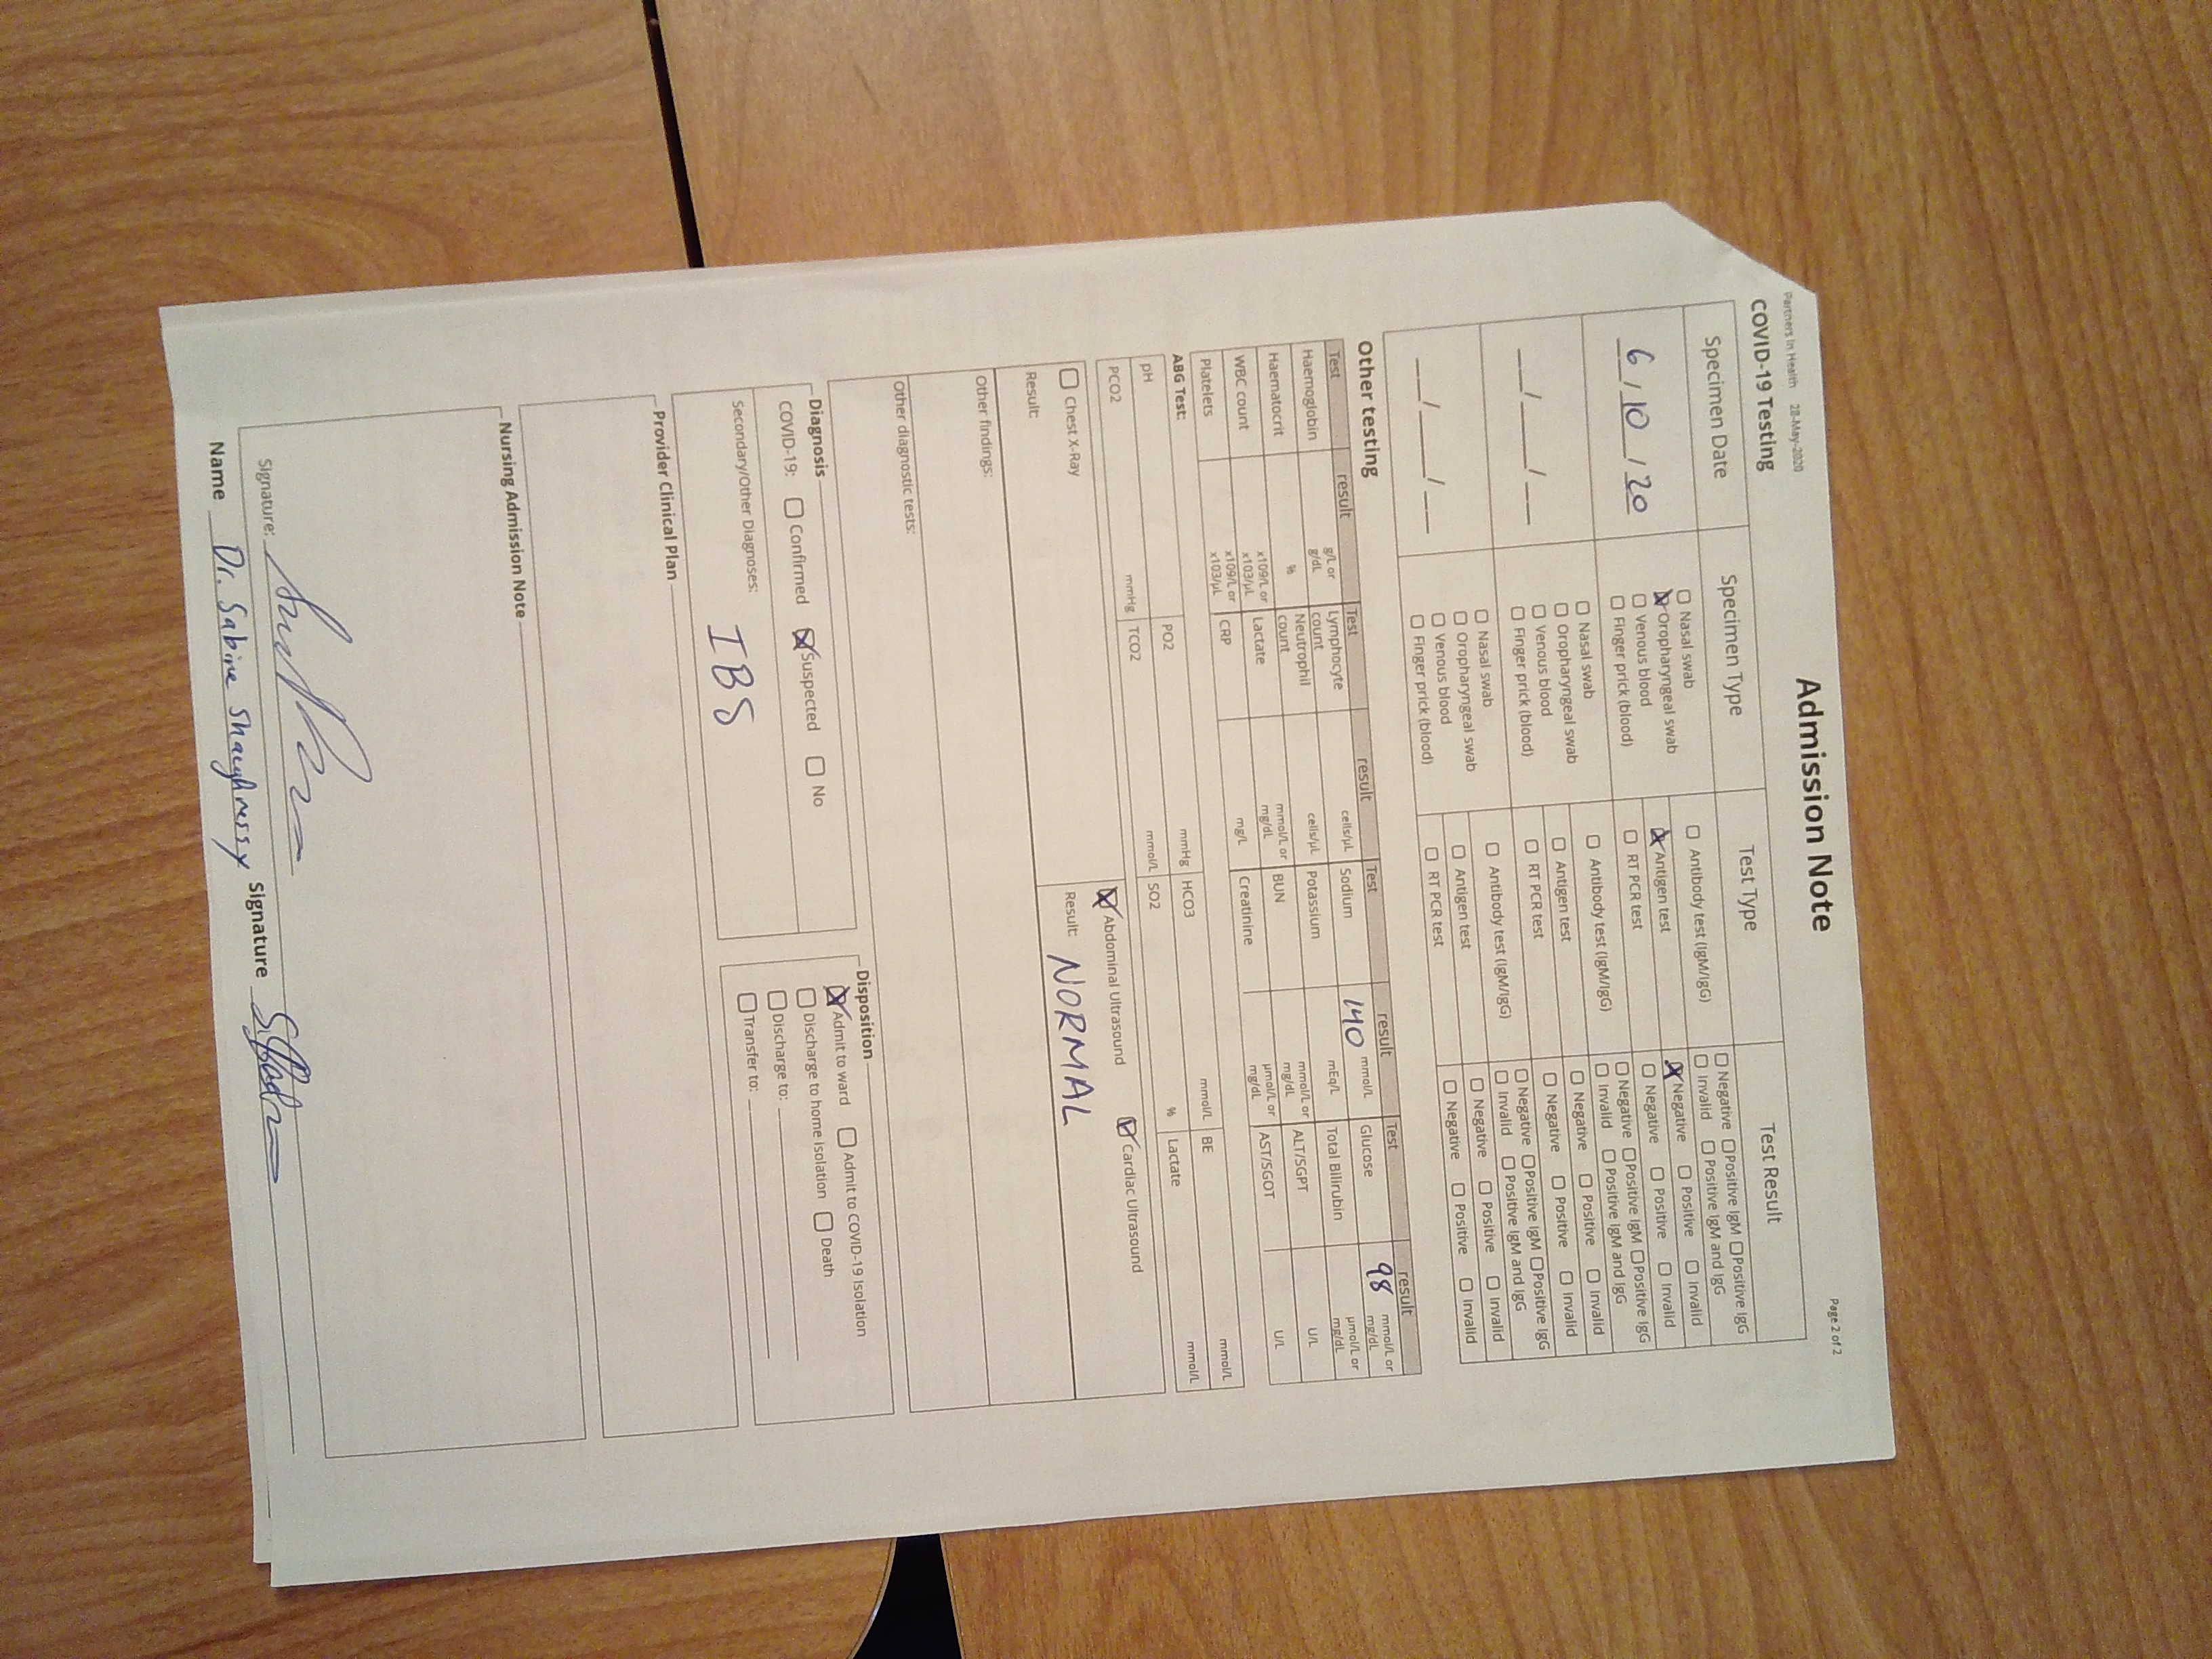 Partners In Health 28-May-2020
Page 2 of 2
Admission Note
COVID-19 Testing
Specimen Date Specimen Type Test Type Test Result
6 / 10 / 20
☐ Nasal swab
☒ Oropharyngeal swab
☐ Venous blood
☐ Finger prick (blood)
☐ Antibody test (IgM/IgG)
☒ Antigen test
☐ RT PCR test
☐ Negative ☐ Positive IgM ☐ Positive IgG
☐ Invalid ☐ Positive IgM and IgG
☒ Negative ☐ Positive ☐ Invalid
☐ Negative ☐ Positive ☐ Invalid
__/__/__
☐ Nasal swab
☐ Oropharyngeal swab
☐ Venous blood
☐ Finger prick (blood)
☐ Antibody test (IgM/IgG)
☐ Antigen test
☐ RT PCR test
☐ Negative ☐ Positive IgM ☐ Positive IgG
☐ Invalid ☐ Positive IgM and IgG
☐ Negative ☐ Positive ☐ Invalid
☐ Negative ☐ Positive ☐ Invalid
__/__/__
☐ Nasal swab
☐ Oropharyngeal swab
☐ Venous blood
☐ Finger prick (blood)
☐ Antibody test (IgM/IgG)
☐ Antigen test
☐ RT PCR test
☐ Negative ☐ Positive IgM ☐ Positive IgG
☐ Invalid ☐ Positive IgM and IgG
☐ Negative ☐ Positive ☐ Invalid
☐ Negative ☐ Positive ☐ Invalid
Other testing
Test result Test result Test result Test result
Haemoglobin g/L or g/dL Lymphocyte count cells/µL Sodium 140 mmol/L Glucose 98 mmol/L or mg/dL
Haematocrit % Neutrophil count cells/µL Potassium mEq/L Total Bilirubin µmol/L or mg/dL
WBC count x109/L or x103/µL Lactate mmol/L or mg/dL BUN mmol/L or mg/dL ALT/SGPT U/L
Platelets x109/L or x103/µL CRP mg/L Creatinine µmol/L or mg/dL AST/SGOT U/L
ABG Test:
pH PO2 mmHg HCO3 mmol/L BE mmol/L
PCO2 mmHg TCO2 mmol/L SO2 % Lactate mmol/L
☐ Chest X-Ray ☒ Abdominal Ultrasound ☑ Cardiac Ultrasound
Result: Result: NORMAL
Other findings:
Other diagnostic tests:
Diagnosis
COVID-19: ☐ Confirmed ☒ Suspected ☐ No
Secondary/Other Diagnoses:
IBS
Disposition
☒ Admit to ward ☐ Admit to COVID-19 Isolation
☐ Discharge to home isolation ☐ Death
☐ Discharge to:
☐ Transfer to:
Provider Clinical Plan
Nursing Admission Note
Signature:
Name Dr. Sabine Shaughnessy Signature